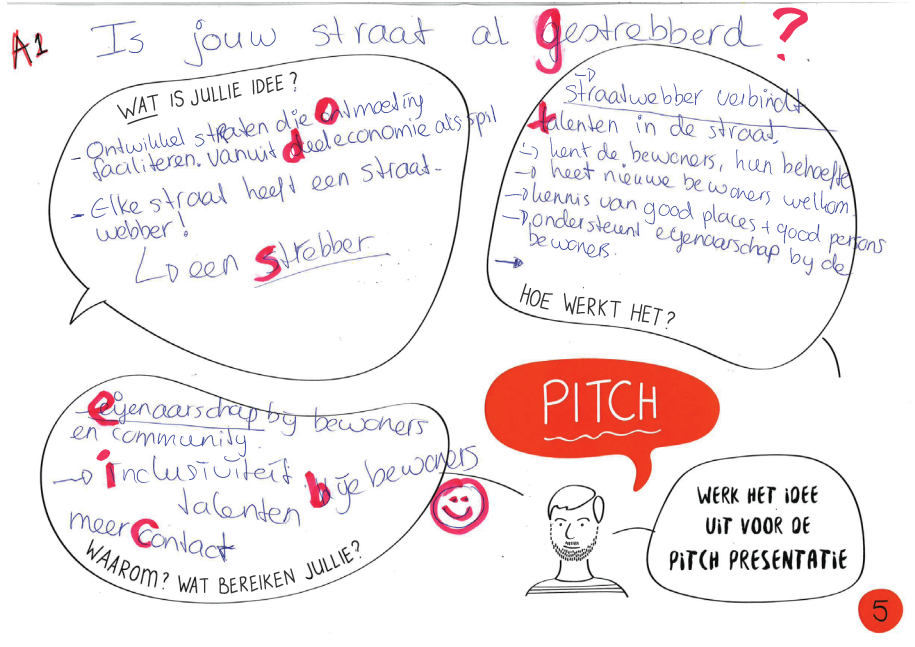 A1 Is jouw straat al gestrebberd?
WAT IS JULLIE IDEE?
- Ontwikkel straten die ontmoeting
faciliteren. Vanuit deeleconomie als spil
- Elke straat heeft een straat-
webber!
↳ een strebber
→ straatwebber verbindt
talenten in de straat,
→ kent de bewoners, hun behoefte
→ heet nieuwe bewoners welkom
→ kennis van good places + good persons
→ ondersteunt eigenaarschap by de
bewoners.
→
HOE WERKT HET?
- eigenaarschap by bewoners
en community.
→ inclusiviteit
talenten bije bewoners
meer contact
WAAROM? WAT BEREIKEN JULLIE?
PITCH
WERK HET IDEE
UIT VOOR DE
PITCH PRESENTATIE
5